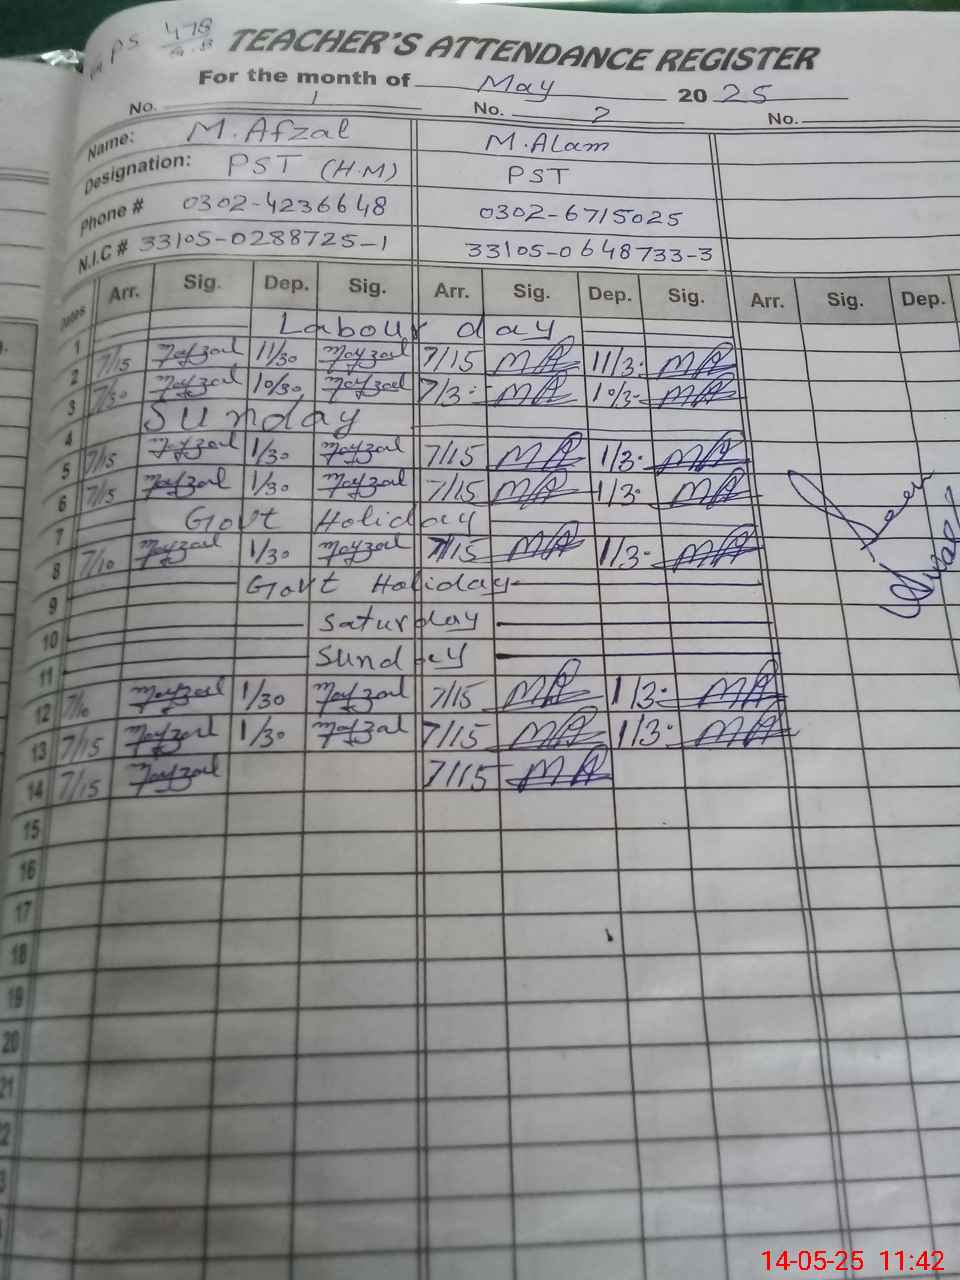 PS 478
G.B
TEACHER'S ATTENDANCE REGISTER
For the month of May 20 25
No. 1 No. 2 No.
Name: M. Afzal M. Alam
Designation: PST (H.M) PST
Phone # 0302-4236648 0302-6715025
N.I.C # 33105-0288725-1 33105-0648733-3
Dates Arr. Sig. Dep. Sig. Arr. Sig. Dep. Sig. Arr. Sig. Dep.
1 Labour day
2 7/15 Mafzal 11/30 Mafzal 7/15 MA 11/3- MA
3 7/30 Mafzal 10/30 Mafzal 7/3- MA 10/3- MA
4 Sunday
5 7/15 Mafzal 1/30 Mafzal 7/15 MA 1/3- MA
6 7/15 Mafzal 1/30 Mafzal 7/15 MA 1/3- MA
7 Govt Holiday
8 7/10 Mafzal 1/30 Mafzal 7/15 MA 1/3- MA
9 Govt Holiday
10 Saturday
11 Sunday
12 7/10 Mafzal 1/30 Mafzal 7/15 MA 1/3- MA
13 7/15 Mafzal 1/30 Mafzal 7/15 MA 1/3- MA
14 7/15 Mafzal 7/15 MA
15
16
17
18
19
20
21
14-05-25 11:42